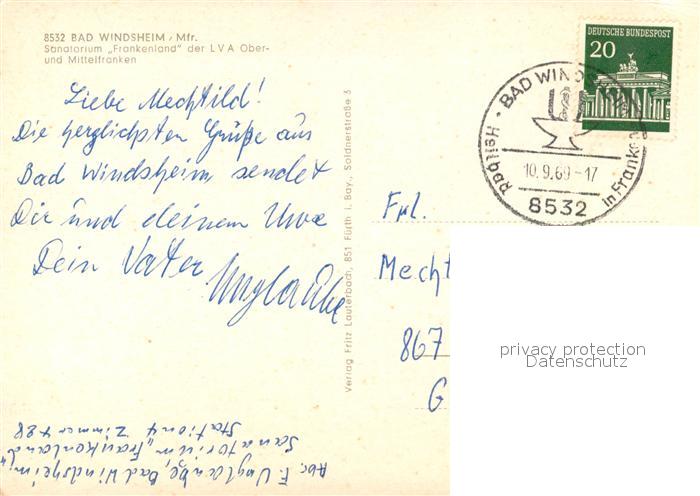 8532 BAD WINDSHEIM, Mfr.
Sanatorium „Frankenland" der LVA Ober-
und Mittelfranken
Liebe Mechtild!
Die herzlichsten Grüße aus
Bad Windsheim sendet
Dir und deinem Uwe
Dein Vater Unglaube
Abs. F. Unglaube, Bad Windsheim,
Sanatorium „Frankenland"
Station 4 Zimmer 428
Verlag Fritz Lauterbach, 851 Fürth i. Bay., Soldnerstraße 5
DEUTSCHE BUNDESPOST
20
BAD WINDS
Heilbad
in Franken
10.9.69-17
8532
Frl.
Mecht
867
G
privacy protection
Datenschutz